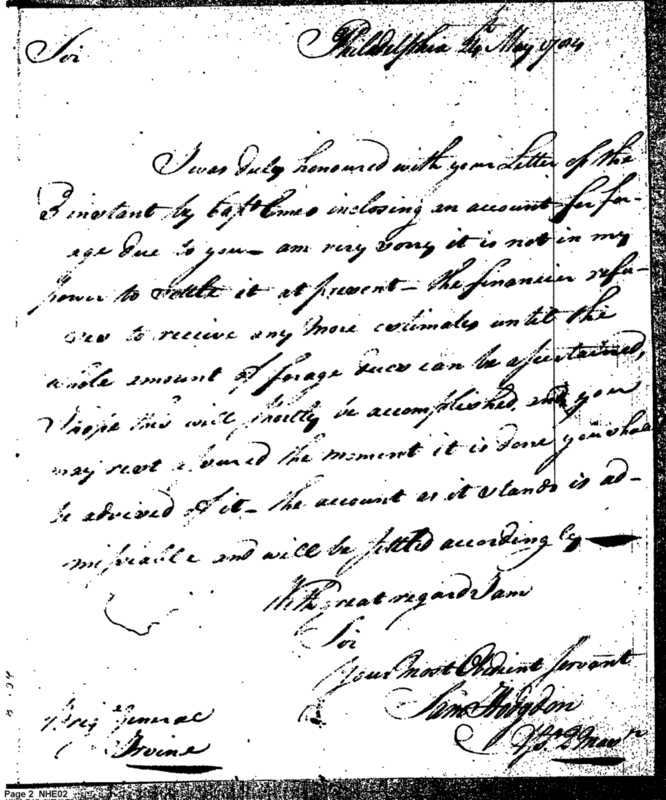 Philadelphia 24th May 1784
Sir
I was duly honoured with your Letter of the
3 instant by Capt inclosing an account for for-
age due to you – am very sorry it is not in my
power to settle it at present – the financier refu-
ses to receive any more estimates until the
whole amount of forage dues can be ascertained,
I hope this will shortly be accomplished, and you
may rest assured the moment it is done you shall
be advised of it – the account as it stands is ad-
missable and will be settled accordingly —
With great regard I am
Sir
Your Most Obedient Servant
Sam Hodgdon
Brig General
Irvine
Page 2 NHE02